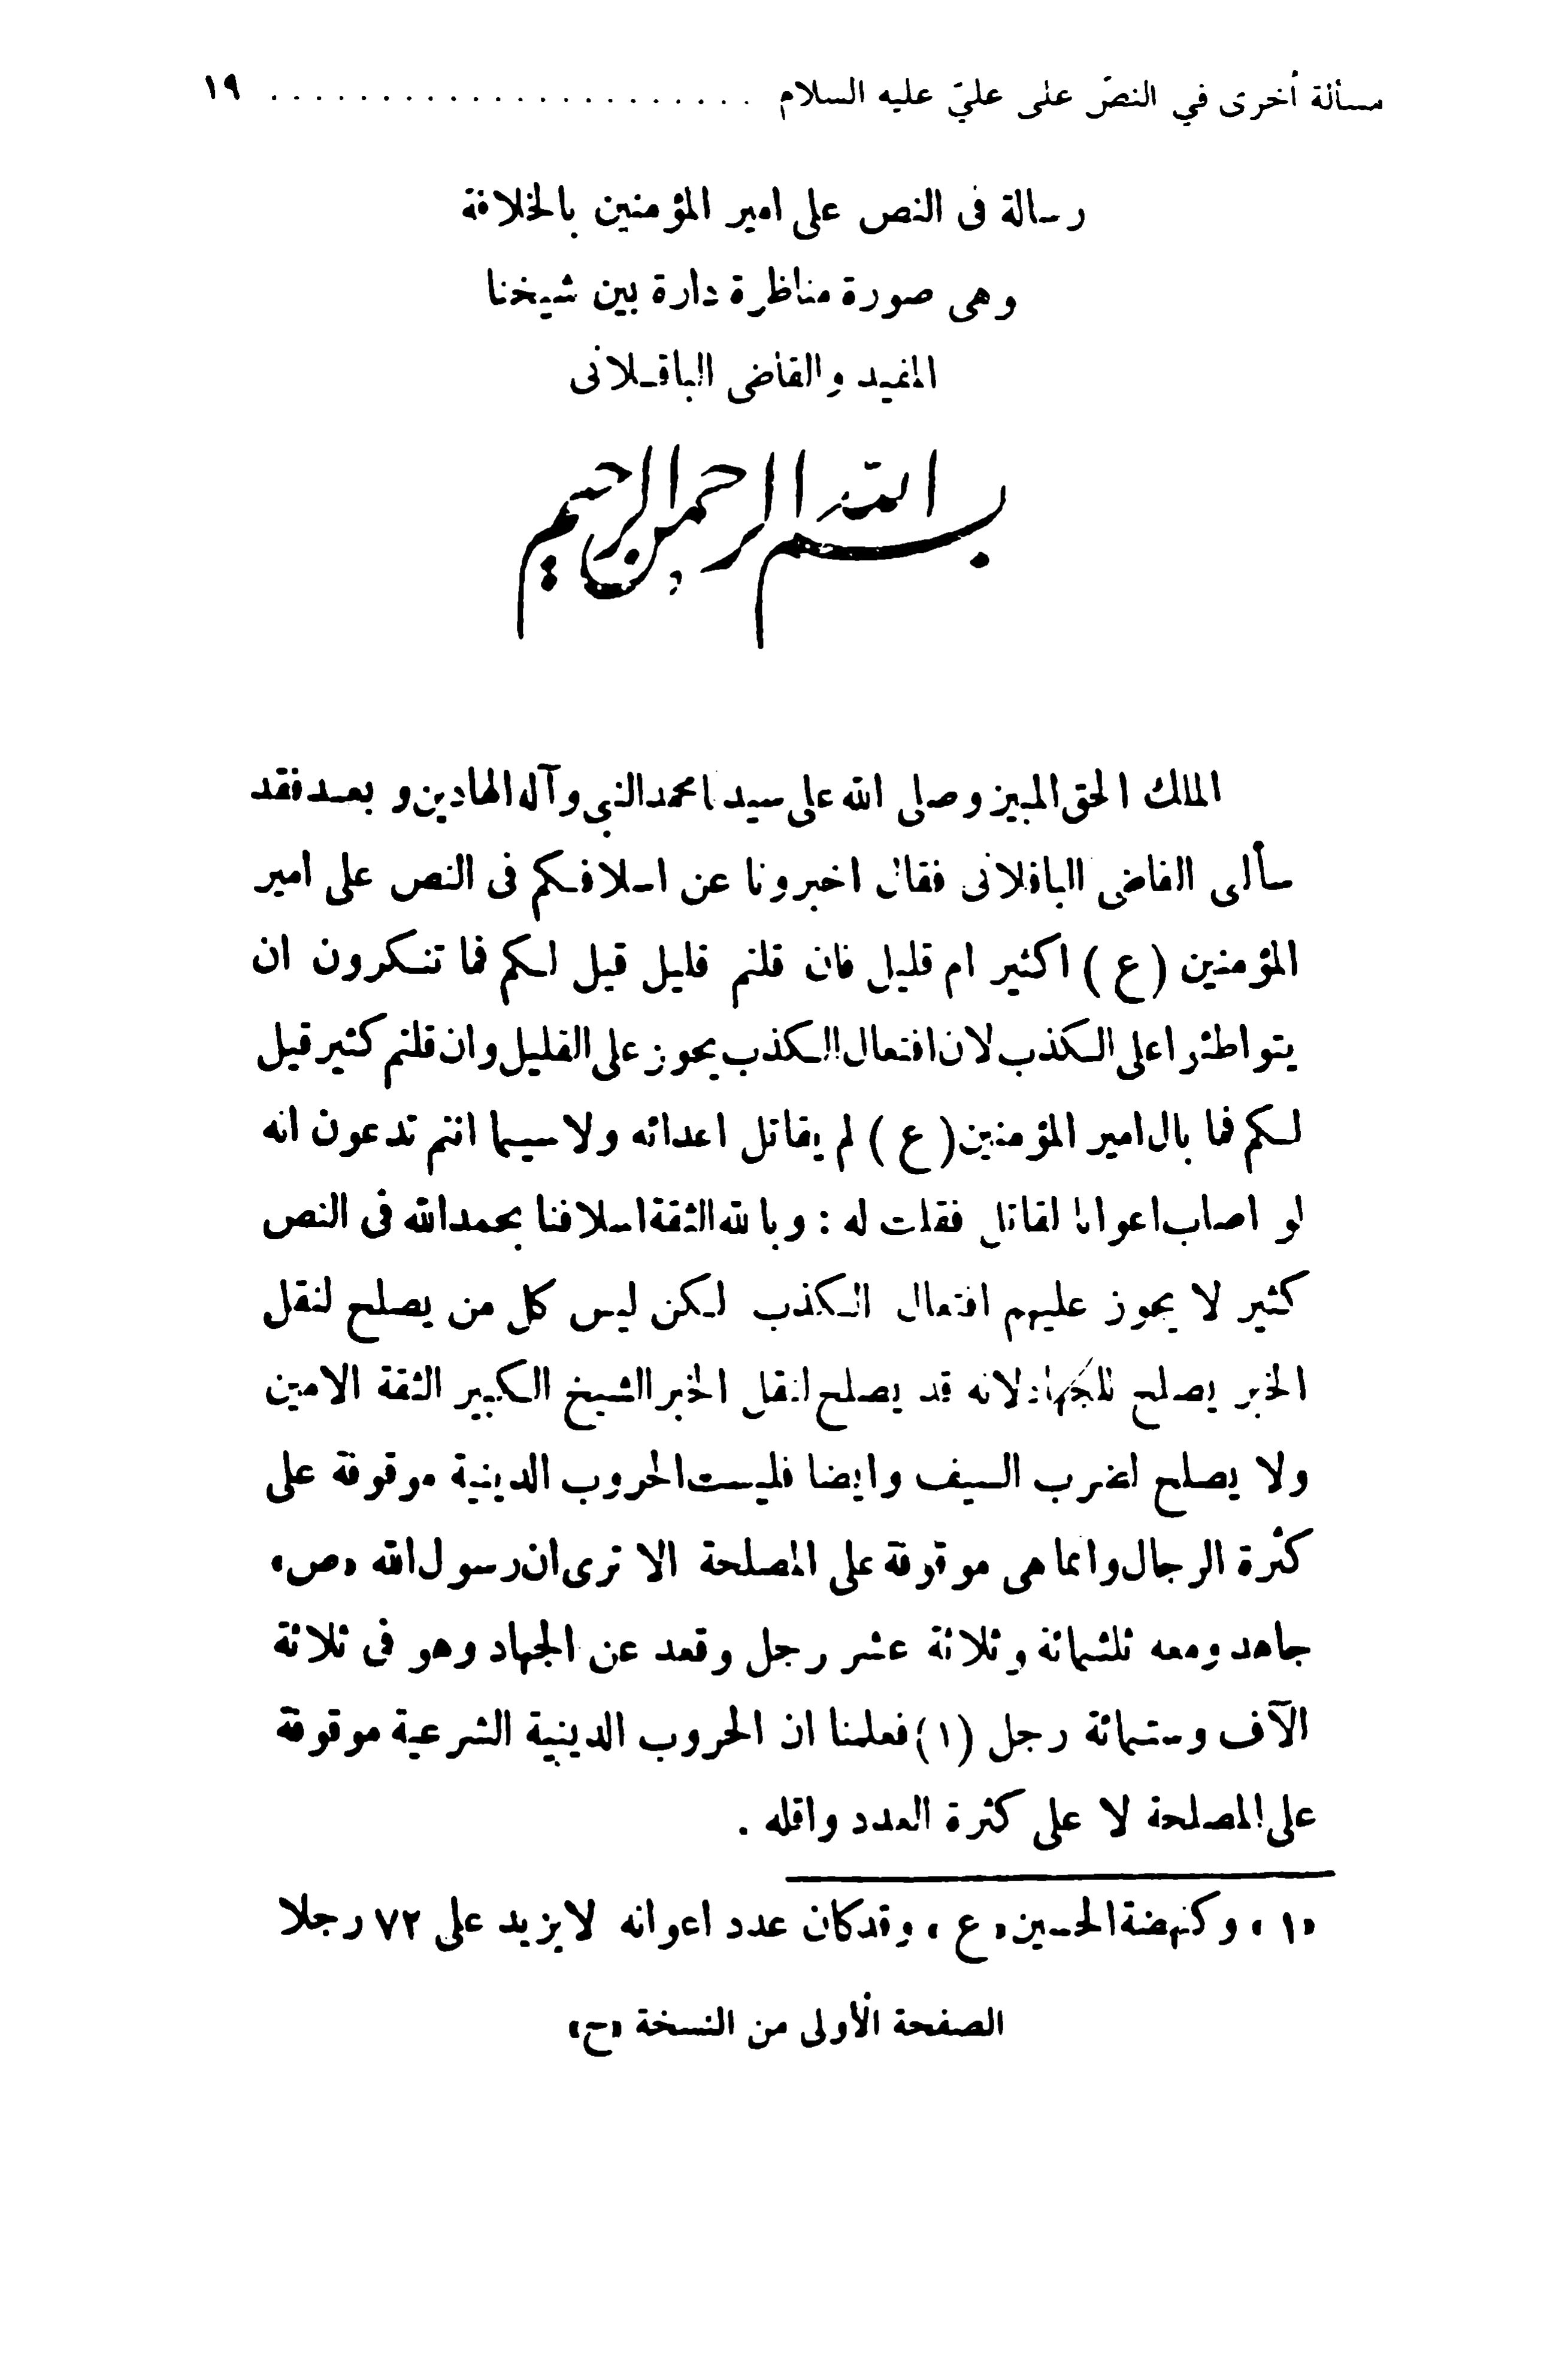 مسألة أخرى في النصّ على عليّ عليه السلام ...................... ١٩
رسالة فى النص على امير المؤمنين بالخلافة
وهى صورة مناظرة دارة بين شيخنا
المفيد والقاضى الباقلانى
بسم الله الرحمن الرحيم
المالك الحق المبين وصلى الله على سيدنا محمد النبى وآله الهادين و بعد فقد
سألنى القاضى الباقلانى فقال اخبرونا عن اسلافكم فى النص على امير
المؤمنين (ع) اكثير ام قليل فان قلتم قليل قيل لكم فما تنكرون ان
يتواطئوا على الكذب لان افتعال الكذب يجوز على القليل وان قلتم كثير قيل
لكم فما بال امير المؤمنين (ع) لم يقاتل اعدائه ولا سيما انتم تدعون انه
لو اصاب اعوانا لقاتل فقلت له : وبالله الثقة اسلافنا بحمد الله فى النص
كثير لا يجوز عليهم افتعال الكذب لكن ليس كل من يصلح لنقل
الخبر يصلح للجهاد لانه قد يصلح لنقل الخبر الشيخ الكبير الثقة الامين
ولا يصلح لضرب السيف وايضا فليست الحروب الدينية موقوفة على
كثرة الرجال وانما هى موقوفة على المصلحة الا ترى ان رسول الله «ص»
جاهد ومعه ثلثمائة وثلاثة عشر رجل وقعد عن الجهاد وهو فى ثلاثة
الآف وستمائة رجل (١) فعلمنا ان الحروب الدينية الشرعية موقوفة
على المصلحة لا على كثرة العدد واقله .
«١» وكنهضة الحسين «ع» وقد كان عدد اعوانه لا يزيد على ٧٢ رجلا
الصفحة الأولى من النسخة «ح»